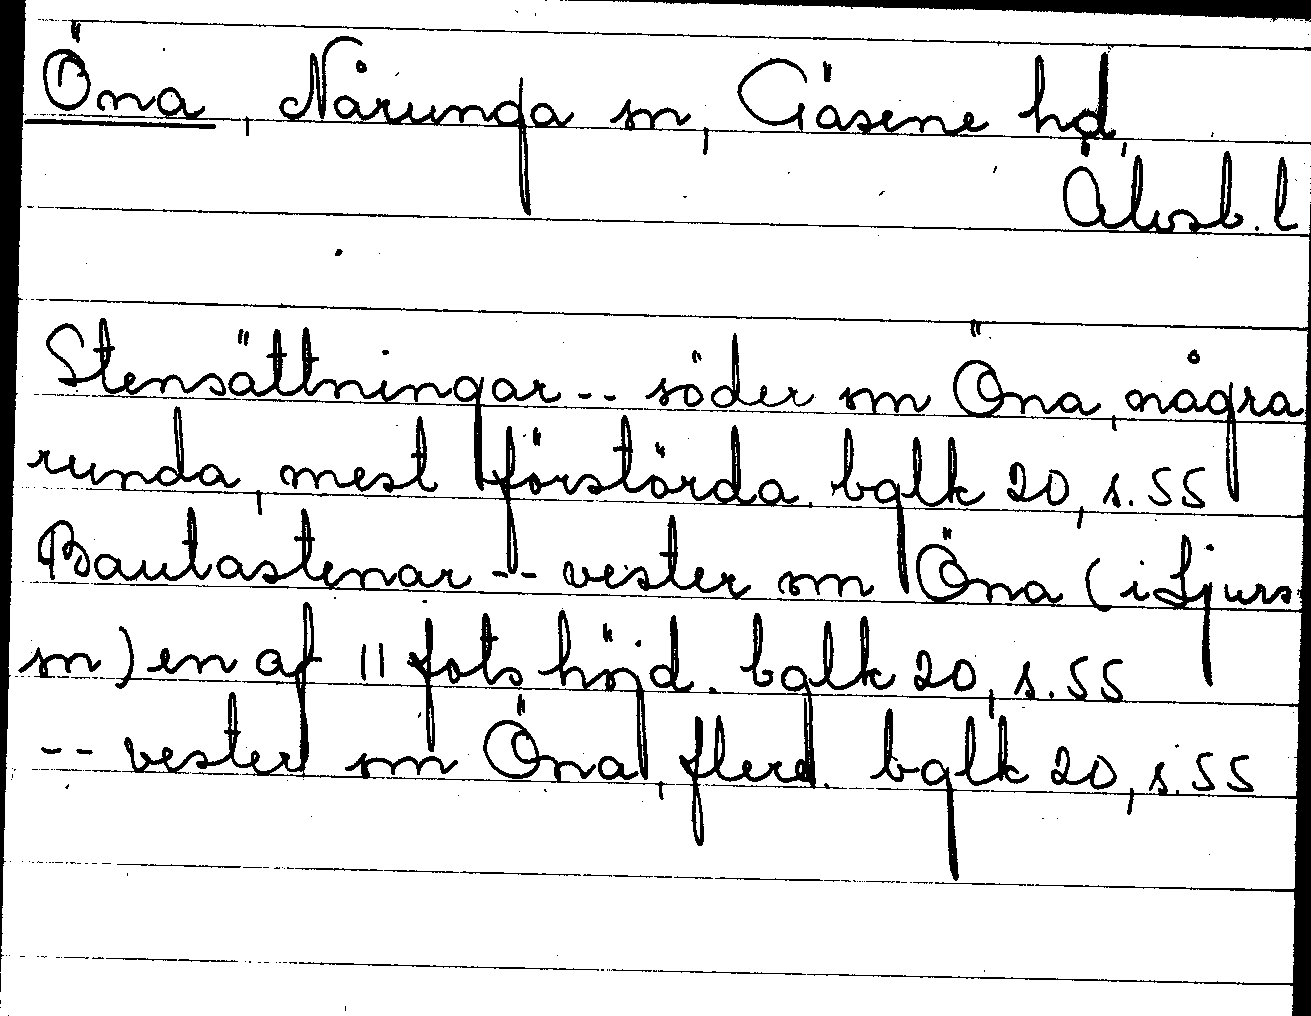 Öna, Nårunga sn, Gäsene hd,
Älvsb. l
Stensättningar -- söder om Öna, några
runda, mest förstörda. bglk 20, s. 55
Bautastenar -- vester om Öna (i Ljurs
sn) en af 11 fots höjd. bglk 20, s. 55
-- vester om Öna, flera. bglk 20, s. 55